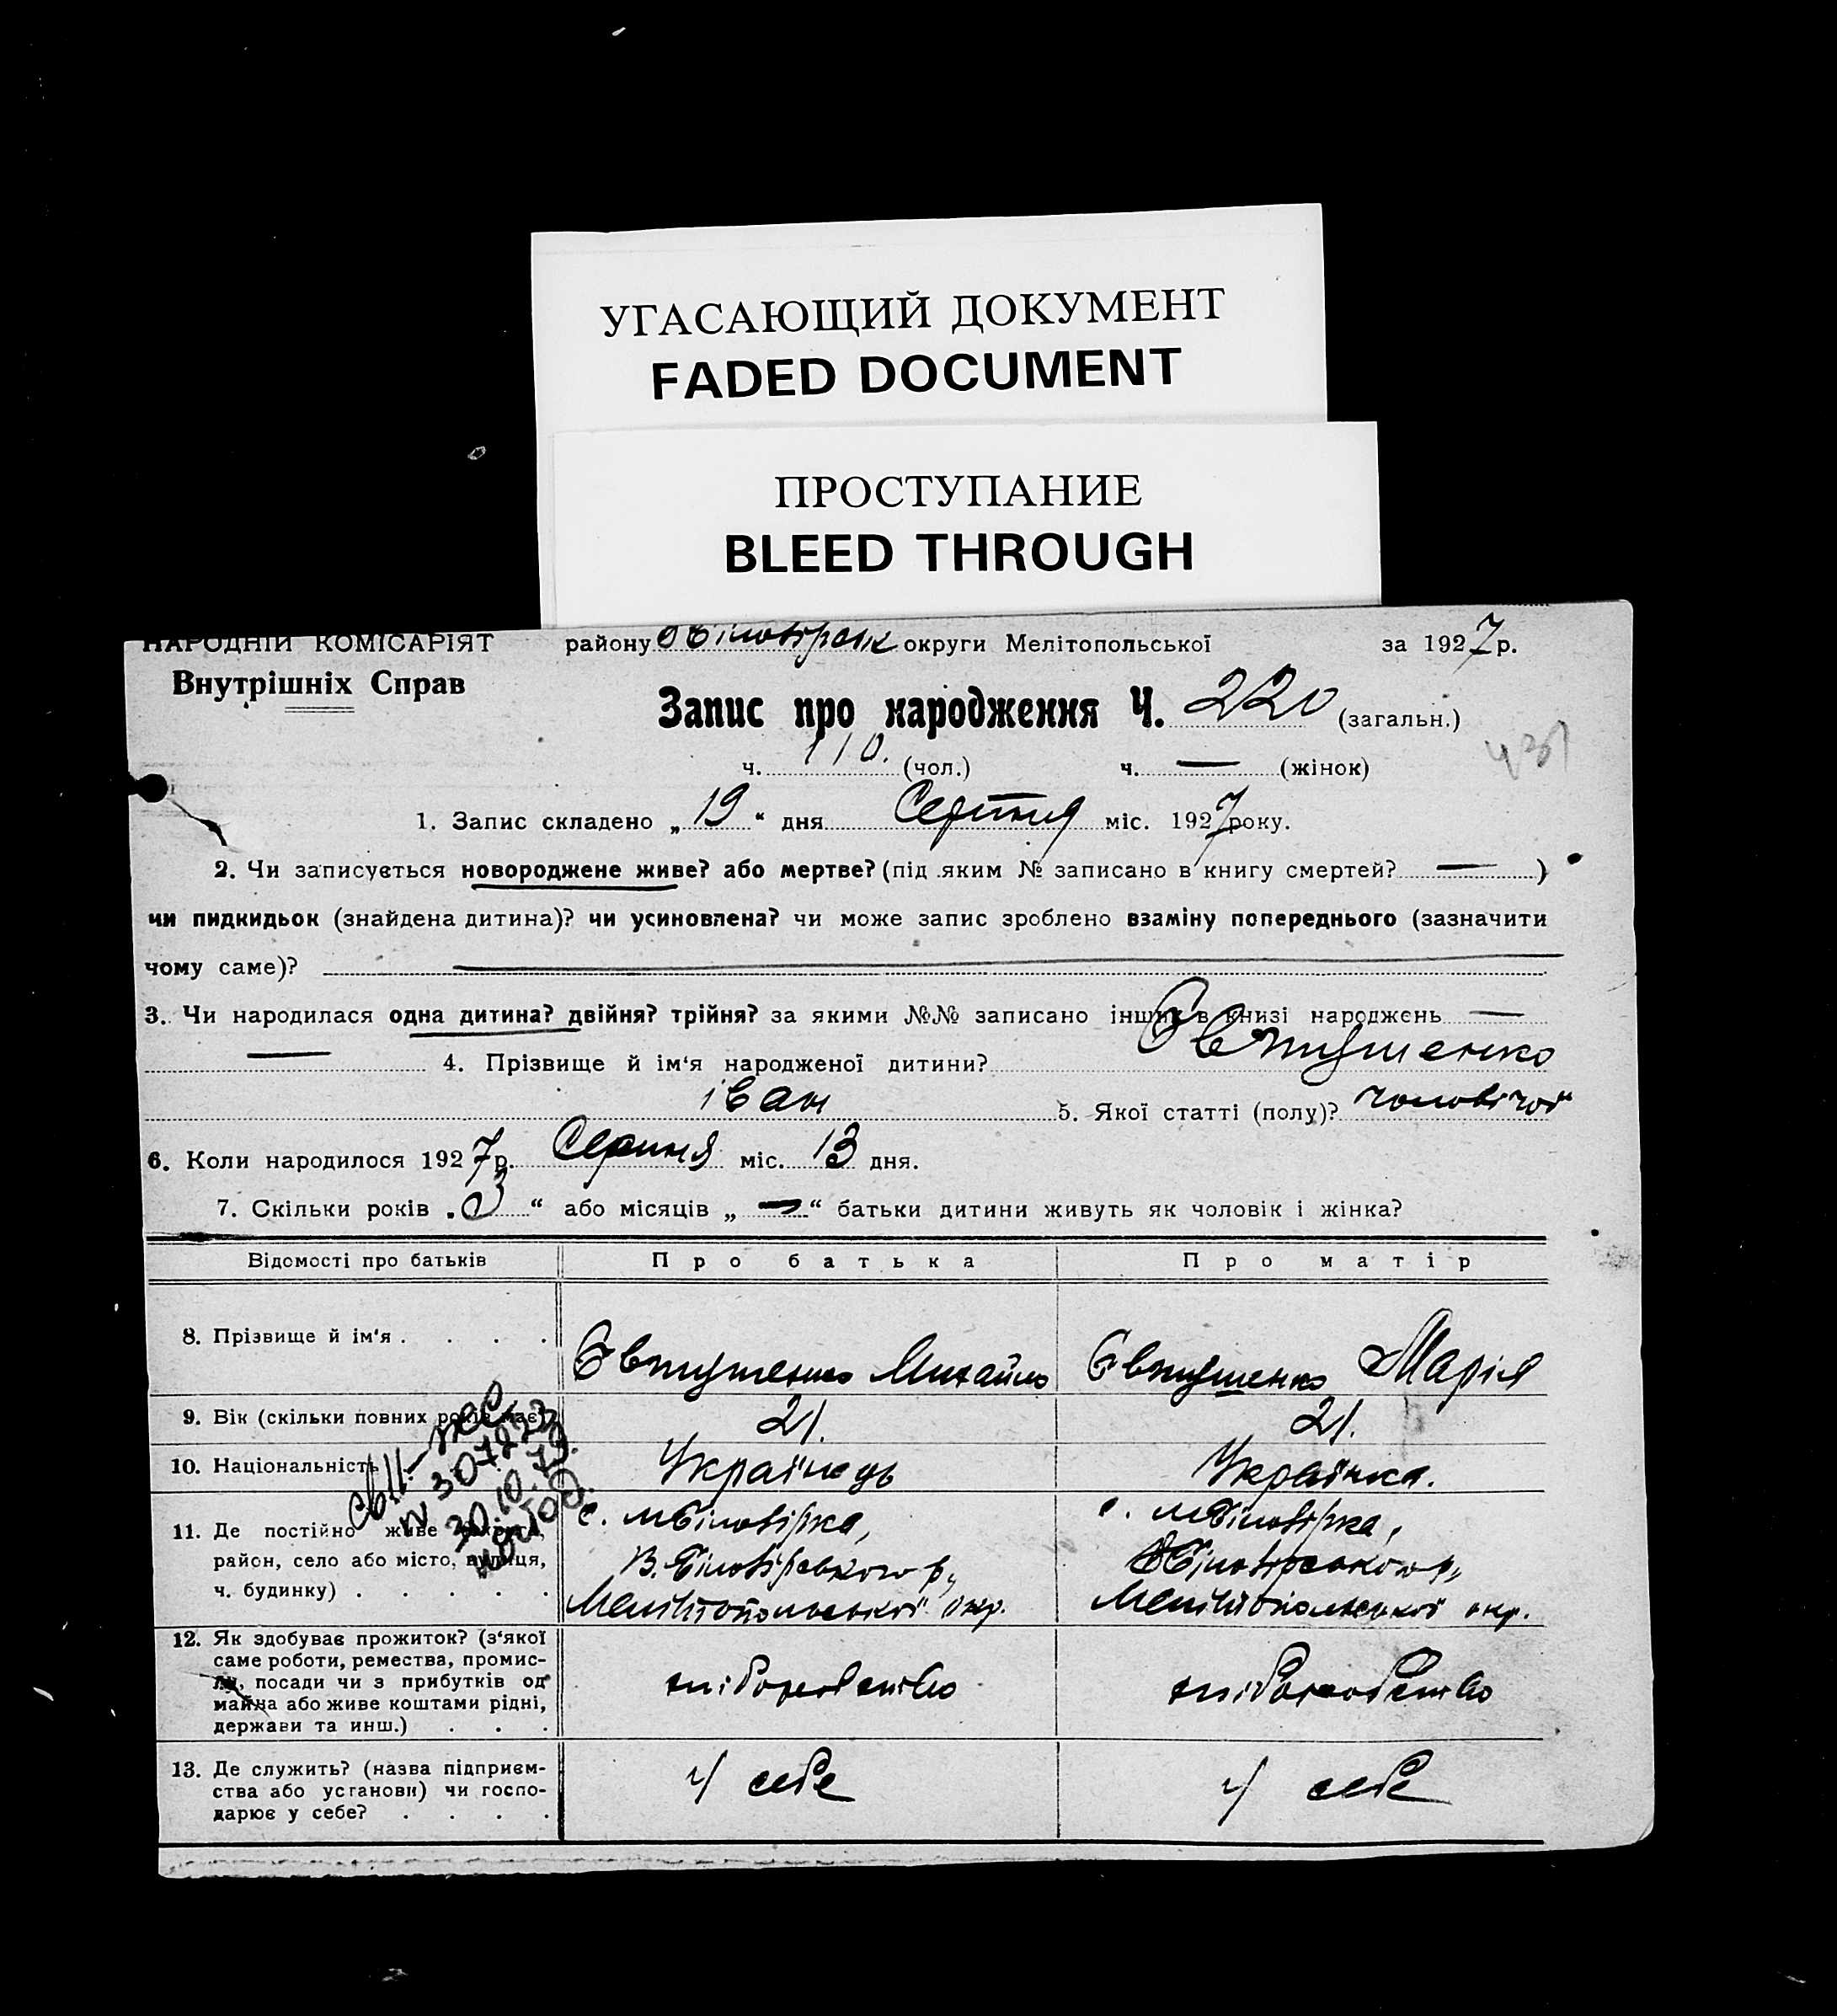 УГАСАЮЩИЙ ДОКУМЕНТ
FADED DOCUMENT
ПРОСТУПАНИЕ
BLEED THROUGH
НАРОДНІЙ КОМІСАРІЯТ району округи Мелітопольської за 1927 р.
Внутрішніх Справ
Запис про народження Ч. 220 (загальн.)
ч. 110. (чол.) ч. — (жінок)
1. Запис складено „19“ дня Серпня міс. 1927 року.
2. Чи записується новороджене живе? або мертве? (під яким № записано в книгу смертей? — )
чи пидкидьок (знайдена дитина)? чи усиновлена? чи може запис зроблено взаміну попереднього (зазначити
чому саме)? —
3. Чи народилася одна дитина? двійня? трійня? за якими №№ записано інших в книзі народжень —
— 4. Прізвище й ім‘я народженої дитини? Євтушенко
іван 5. Якої статті (полу)? чоловічої
6. Коли народилося 1927 р. Серпня міс. 13 дня.
7. Скільки років „3“ або місяців „—“ батьки дитини живуть як чоловік і жінка?
Відомості про батьків Про батька Про матір
8. Прізвище й ім‘я . . . . Євтушенко Михайло Євтушенко Марія
9. Вік (скільки повних років має) 21. 21.
10. Національність Українець Українка.
11. Де постійно живе
район, село або місто, вулиця,
ч. будинку) . . . . .
с. Білозірка,
В. Білозірського р,
Мелітопольської окр.
с. Білозірка,
Білозірського р,
Мелітопольської окр.
30.10.79.
12. Як здобуває прожиток? (з‘якої
саме роботи, ремества, промис-
лу, посади чи з прибутків од
майна або живе коштами рідні,
держави та инш.) . . .
хліборобство хліборобство
13. Де служить? (назва підприєм-
ства або установи) чи госпо-
дарює у себе? . . . .
у себе у себе